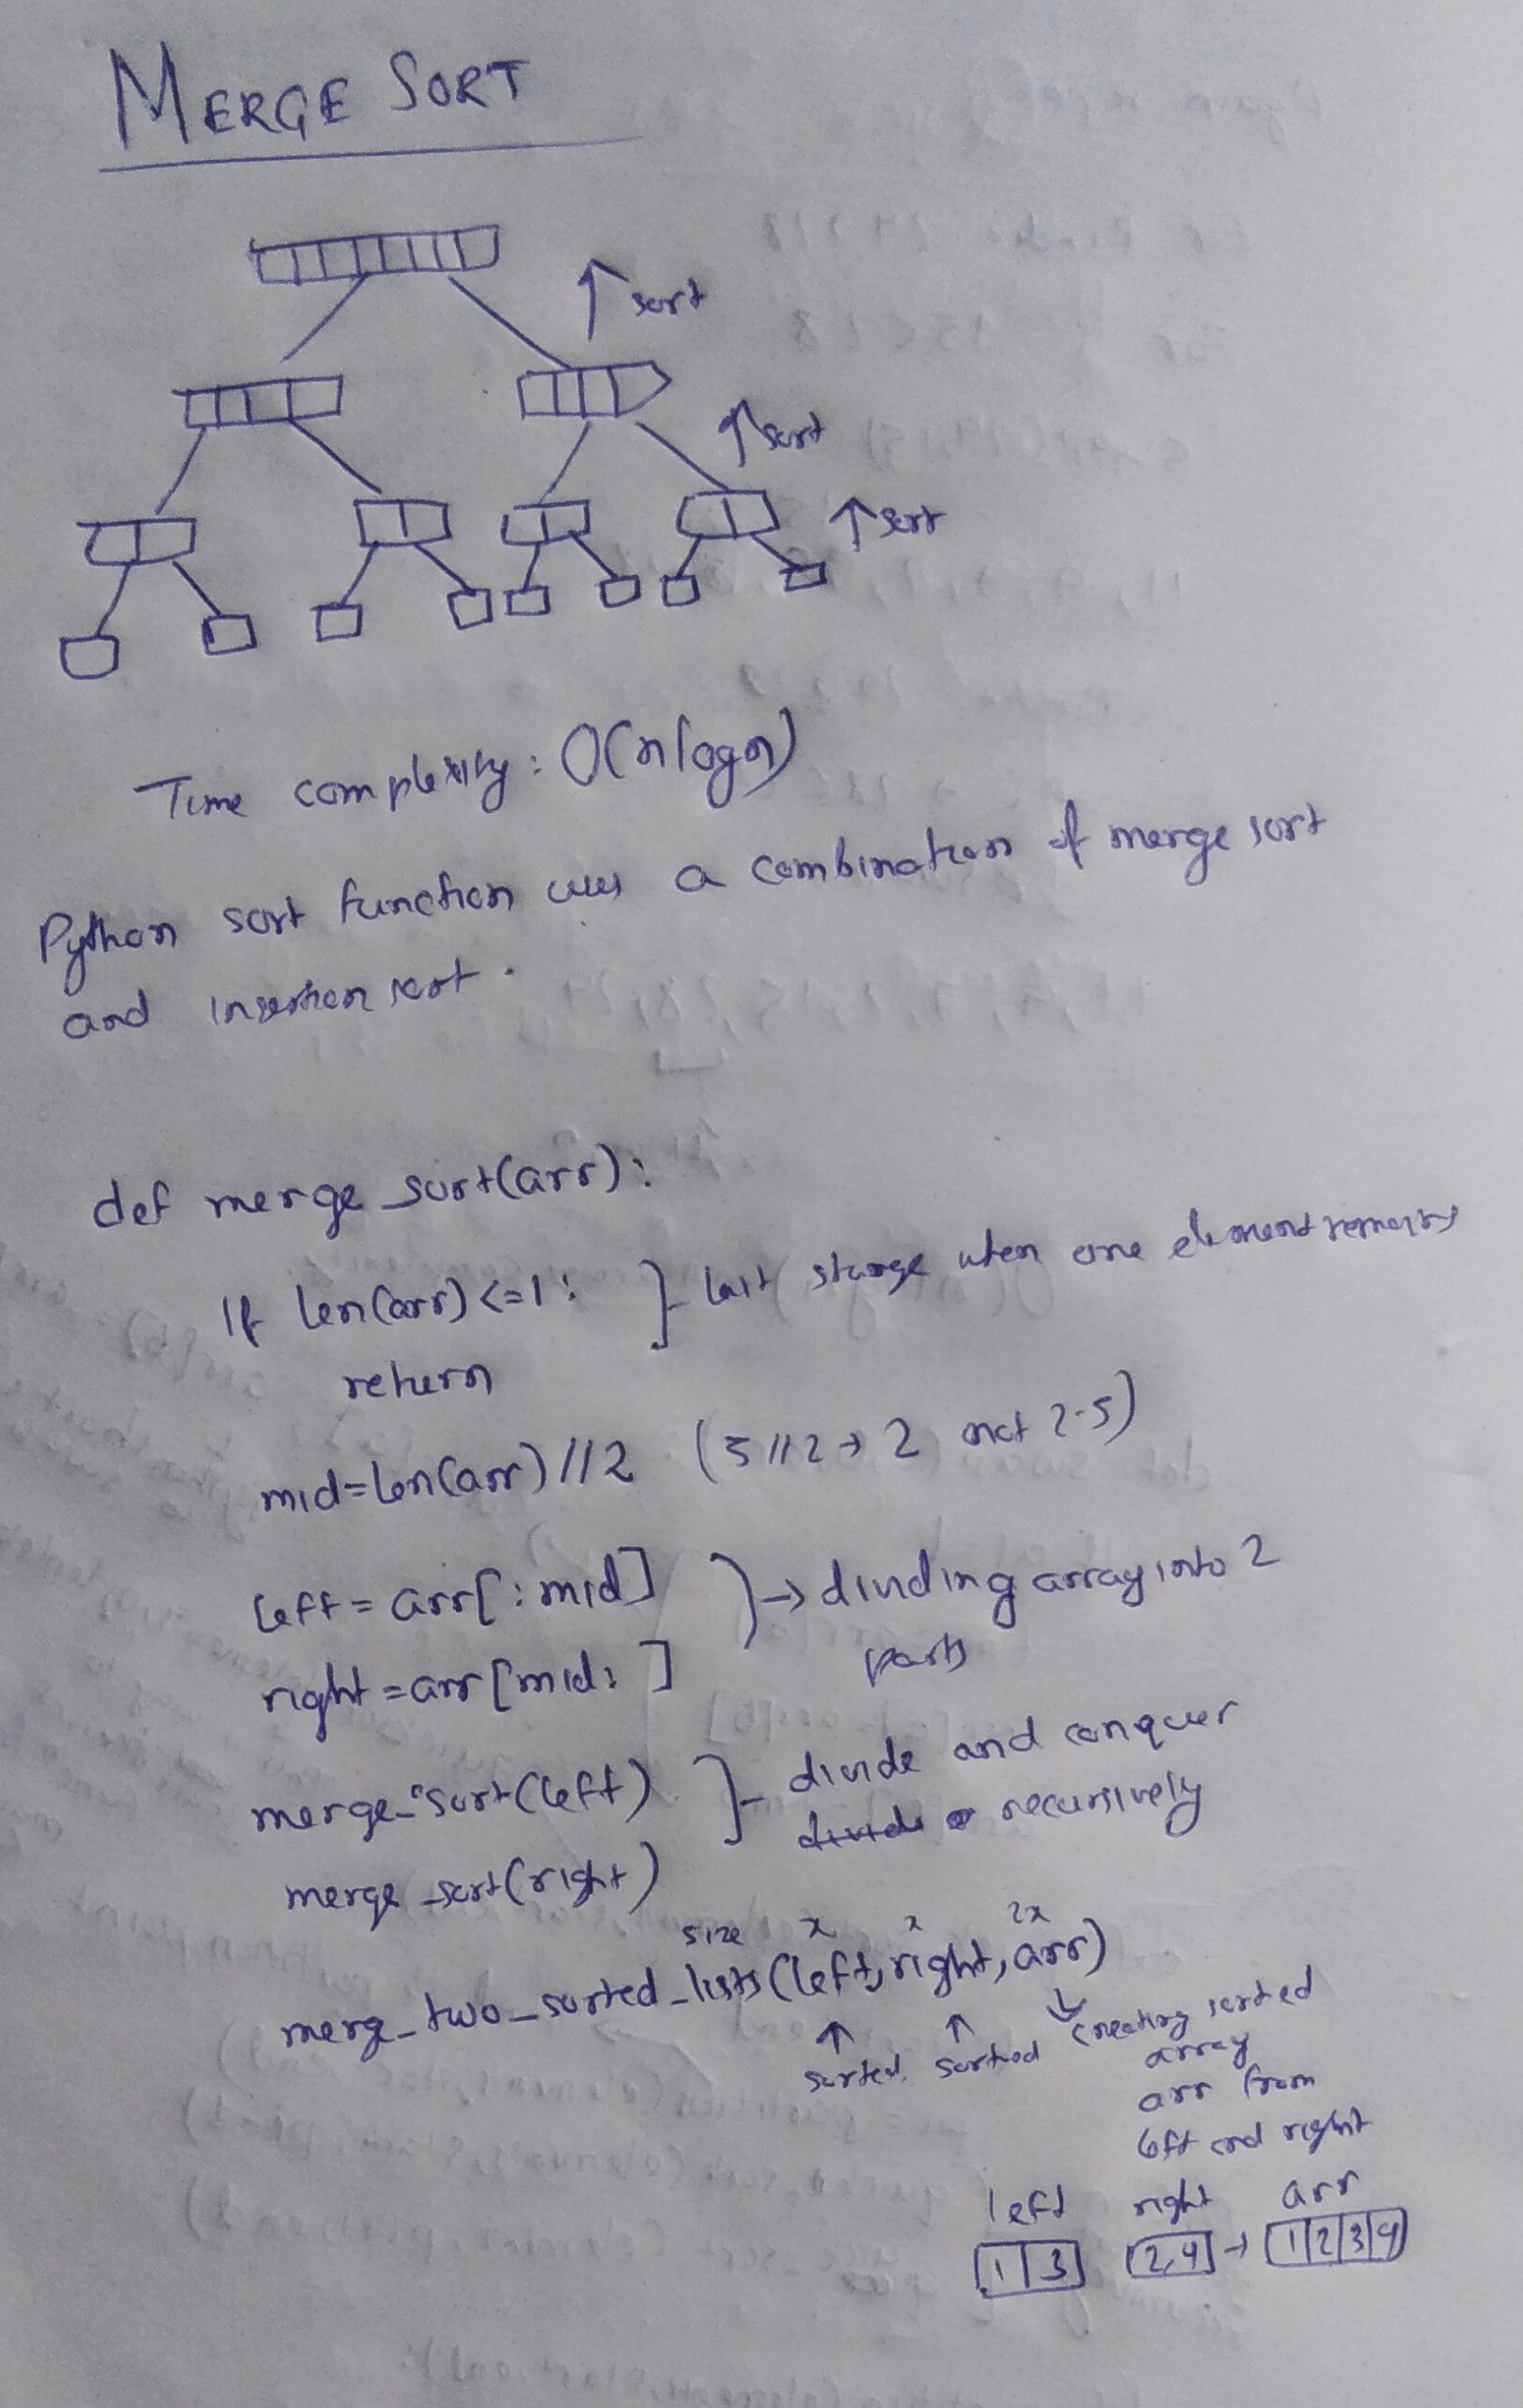 MERGE SORT
↑ sort
↑ sort
↑ sort
Time complexity: O(n log n)
Python sort function uses a combination of merge sort
and insertion sort.
def merge_sort(arr):
if len(arr) <=1: } last stage when one element remains
return
mid=len(arr)//2 (5//2→2 not 2.5)
left = arr[:mid] } → dividing array into 2
parts
right = arr[mid:]
merge_sort(left) } divide and conquer
recursively
merge_sort(right)
size x x 2x
merge_two_sorted_lists(left, right, arr)
↑ ↑ ↓
sorted, sorted creating sorted
array
arr from
left and right
left right arr
1 3 2,4 → 1 2 3 4